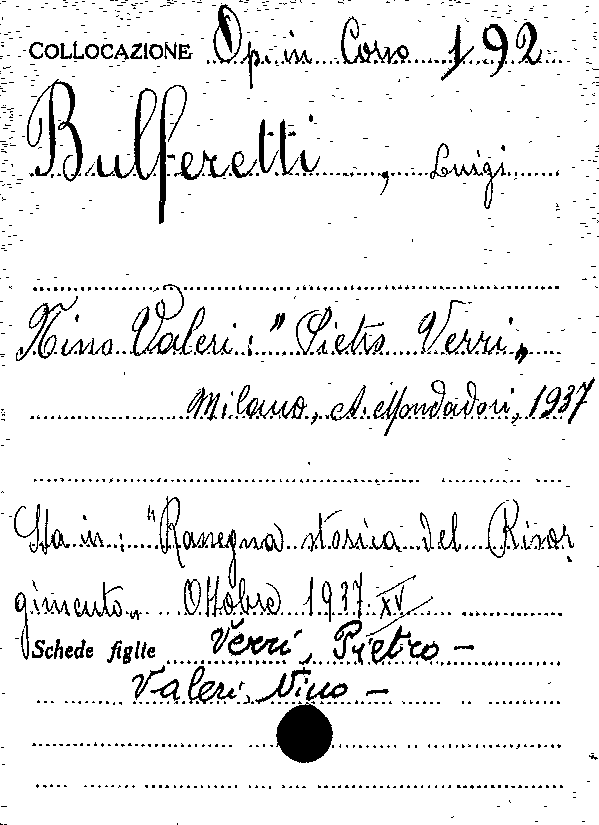 COLLOCAZIONE Op. in Corso 192
Bulferetti, Luigi
Nino Valeri: "Pietro Verri„
Milano, A. Mondadori, 1937
Sta in: "Rassegna storica del Risor
gimento„ Ottobre 1937 XV
Schede figlie Verri, Pietro –
Valeri, Nino –